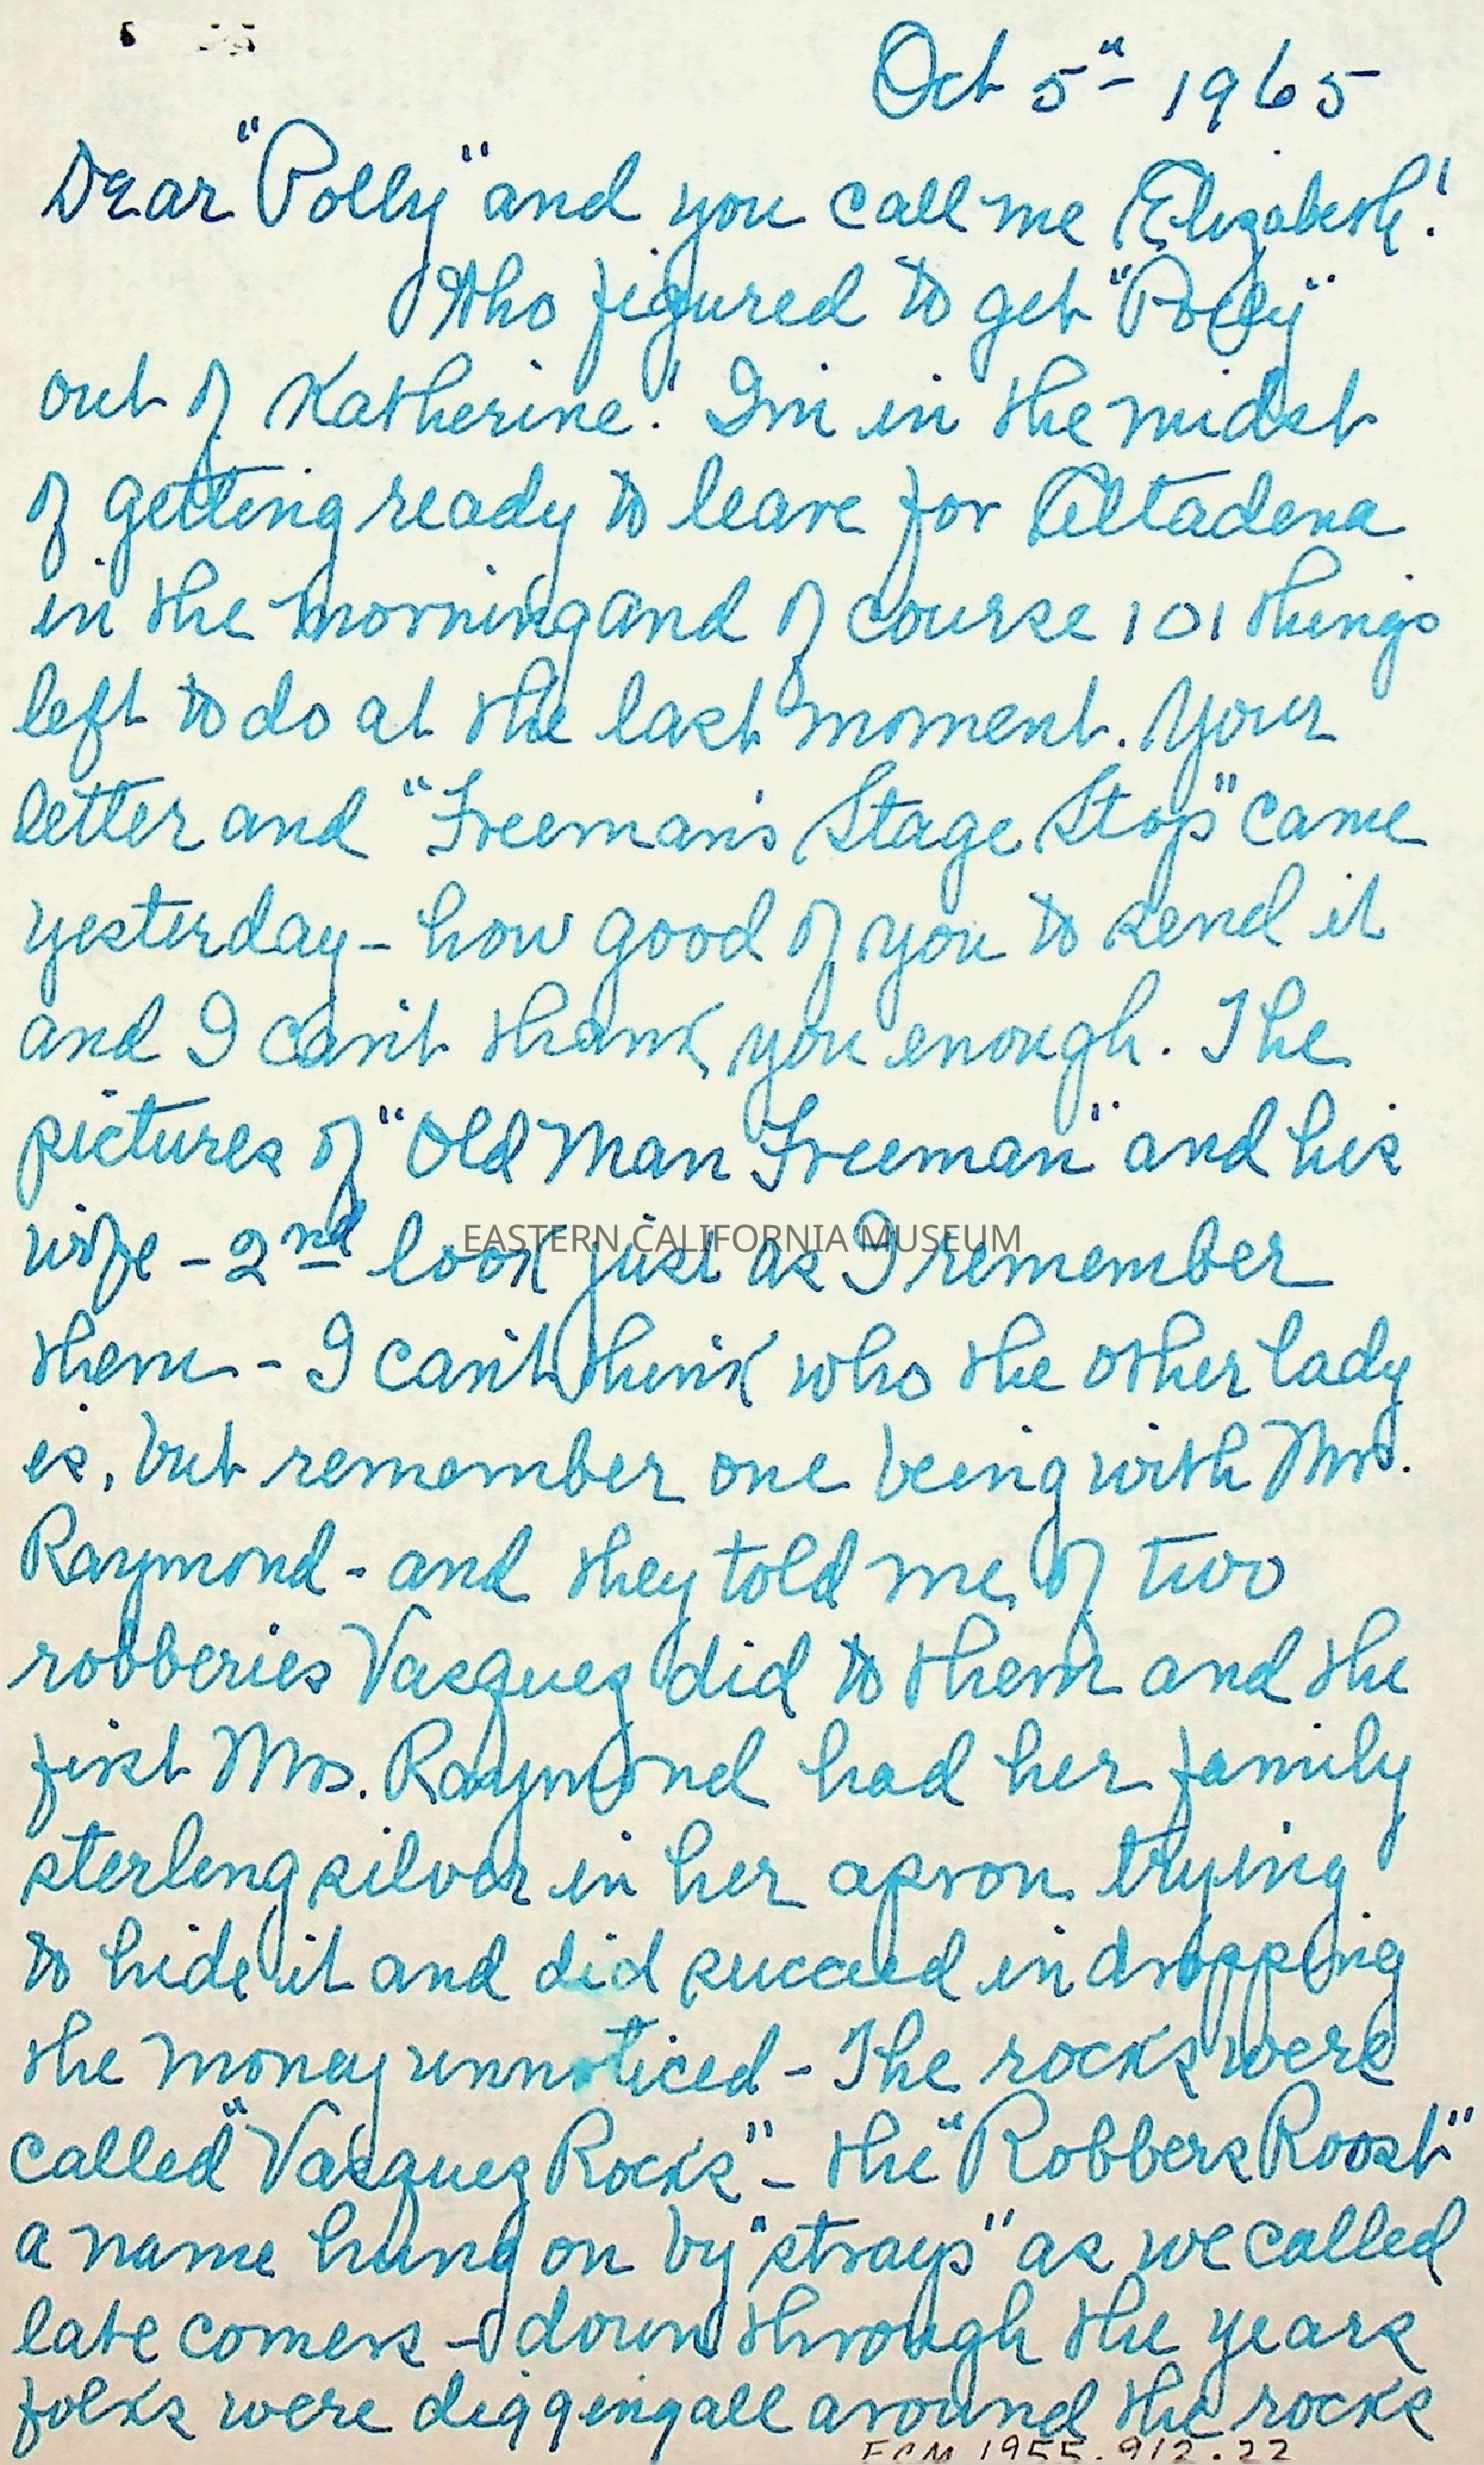 Oct 5" 1965
Dear "Polly" and you call me Elizabeth!
Who figured to get "Polly"
out of Katherine! I'm in the midst
of getting ready to leave for Altadena
in the morning and of course 101 things
left to do at the last moment. Your
letter and "Freeman's Stage Stop" came
yesterday - how good of you to send it
and I can't thank you enough. The
pictures of "Old Man Freeman" and his
wife - 2nd look just as I remember
EASTERN CALIFORNIA MUSEUM
them - I can't think who the other lady
is, but remember one being with Mrs.
Raymond - and they told me of two
robberies Vasquez did to them and the
first Mrs. Raymond had her family
sterling silver in her apron trying
to hide it and did succeed in dropping
the money unnoticed - The rocks were
called "Vasquez Rocks" - the "Robbers Roost"
a name hung on by "strays" as we called
late comers - down through the years
folks were digging all around the rocks
ECM 1955.912.22